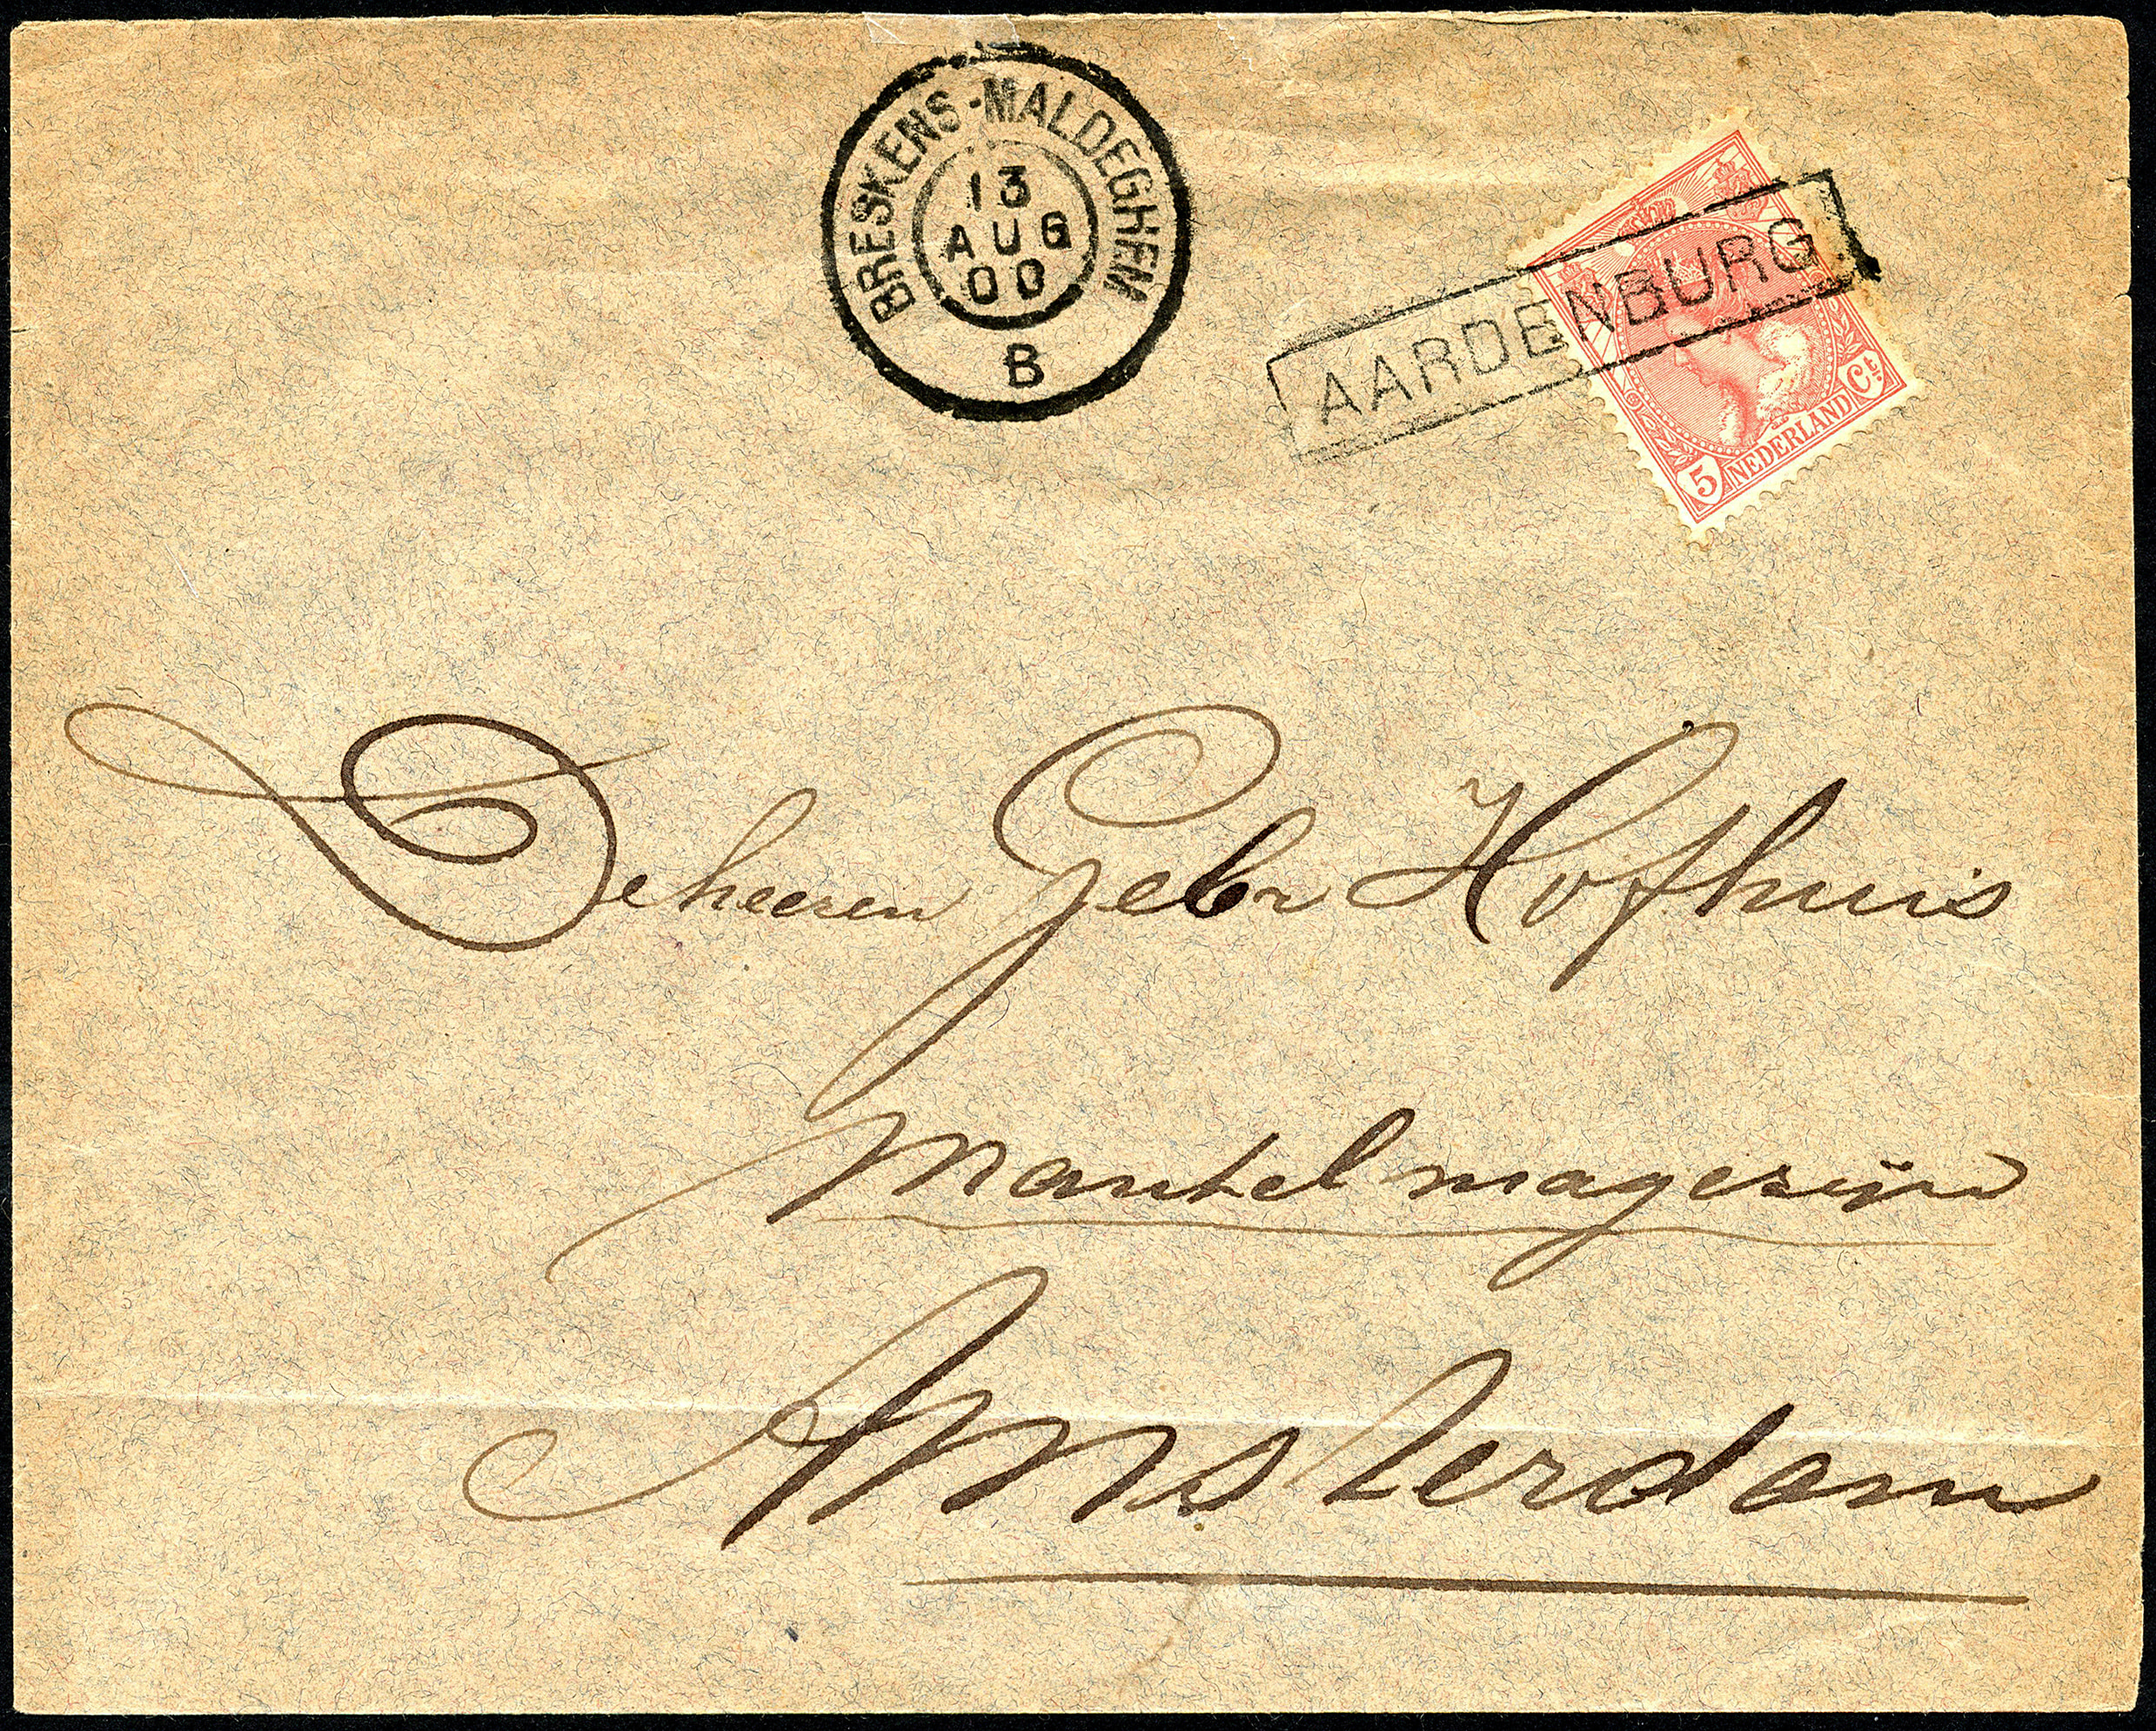 BRESKENS-MALDEGHEM
13
AUG
00
B
AARDENBURG
5 NEDERLAND Ct.
De heeren Gebr Hofhuis
Mantelmagezijn
Amsterdam